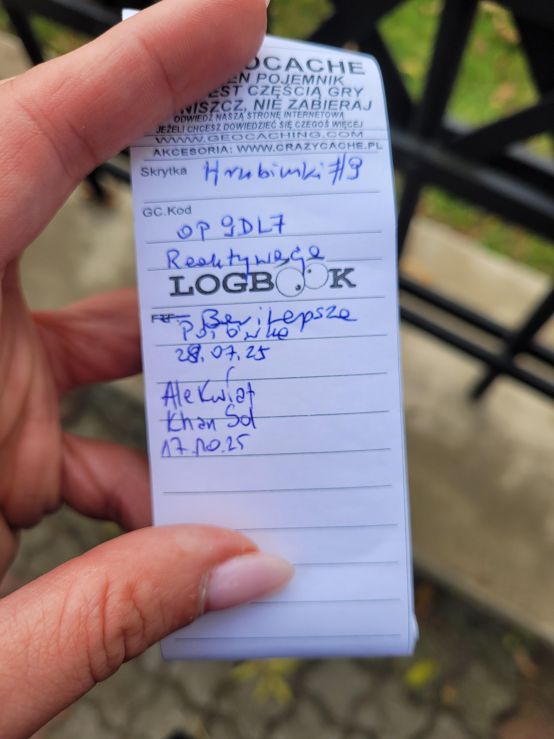 OCACHE
EN POJEMNIK
EST CZĘŚCIĄ GRY
NISZCZ, NIE ZABIERAJ
ODWIEDŹ NASZĄ STRONĘ INTERNETOWĄ
JEŻELI CHCESZ DOWIEDZIEĆ SIĘ CZEGOŚ WIĘCEJ
WWW.GEOCACHING.COM
AKCESORIA: WWW.CRAZYCACHE.PL
Skrytka Hrubinski #9
GC.Kod
OP9DL7
Reaktywacja
LOGBOOK
Ber i Lepsza
Połówka
28.07.25
AleKwiat
Khan Sol
17.10.25